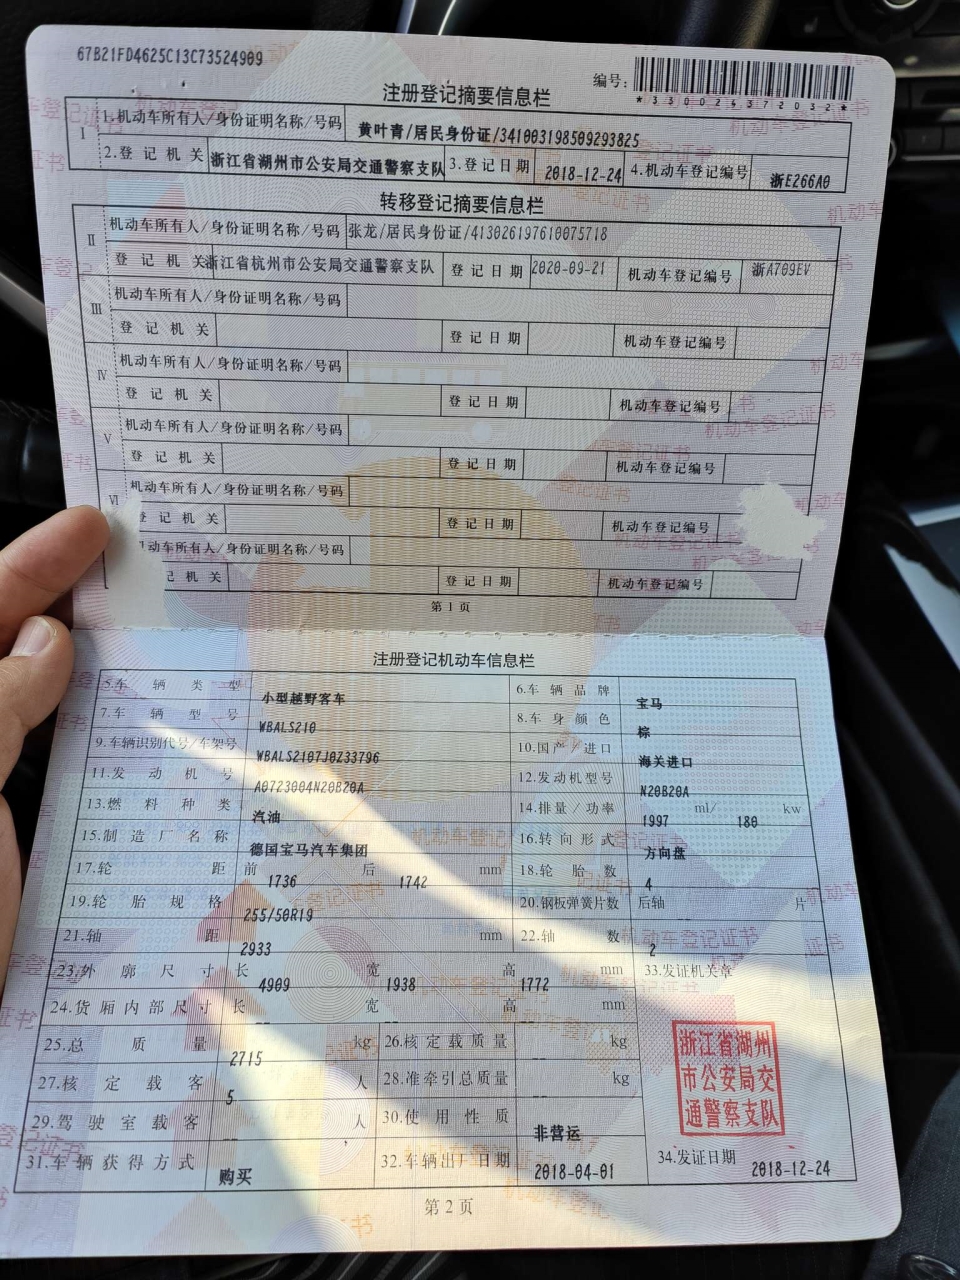 67B21FD4625C13C73524909
编号:
*330024372032*
注册登记摘要信息栏
I 1.机动车所有人/身份证明名称/号码 黄叶青/居民身份证/341003198509293825
2.登记机关 浙江省湖州市公安局交通警察支队 3.登记日期 2018-12-24 4.机动车登记编号 浙E266A0
转移登记摘要信息栏
II 机动车所有人/身份证明名称/号码 张龙/居民身份证/413026197610075718
登记机关 浙江省杭州市公安局交通警察支队 登记日期 2020-09-21 机动车登记编号 浙A709EV
III 机动车所有人/身份证明名称/号码
登记机关 登记日期 机动车登记编号
IV 机动车所有人/身份证明名称/号码
登记机关 登记日期 机动车登记编号
V 机动车所有人/身份证明名称/号码
登记机关 登记日期 机动车登记编号
VI 机动车所有人/身份证明名称/号码
登记机关 登记日期 机动车登记编号
机动车所有人/身份证明名称/号码
记机关 登记日期 机动车登记编号
第1页
注册登记机动车信息栏
5.车辆类型 小型越野客车 6.车辆品牌 宝马
7.车辆型号 WBALS210 8.车身颜色 棕
9.车辆识别代号/车架号 WBALS2107J0Z33796 10.国产/进口 海关进口
11.发动机号 A0723004N20B20A 12.发动机型号 N20B20A
13.燃料种类 汽油 14.排量/功率 1997 ml/ 180 kw
15.制造厂名称 德国宝马汽车集团 16.转向形式 方向盘
17.轮距 前 1736 后 1742 mm 18.轮胎数 4
19.轮胎规格 255/50R19 20.钢板弹簧片数 后轴 -- 片
21.轴距 2933 mm 22.轴数 2
23.外廓尺寸 长 4909 宽 1938 高 1772 mm 33.发证机关章
24.货厢内部尺寸 长 -- 宽 -- 高 -- mm
25.总质量 2715 kg 26.核定载质量 -- kg
浙江省湖州
市公安局交
通警察支队
27.核定载客 5 人 28.准牵引总质量 -- kg
29.驾驶室载客 -- 人 30.使用性质 非营运
31.车辆获得方式 购买 32.车辆出厂日期 2018-04-01 34.发证日期 2018-12-24
第2页